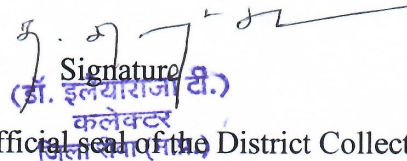 Signature
(डॉ. इलैयाराजा टी.)
कलेक्टर
fficial seal of the District Collect
जिला रीवा (म.प्र.)